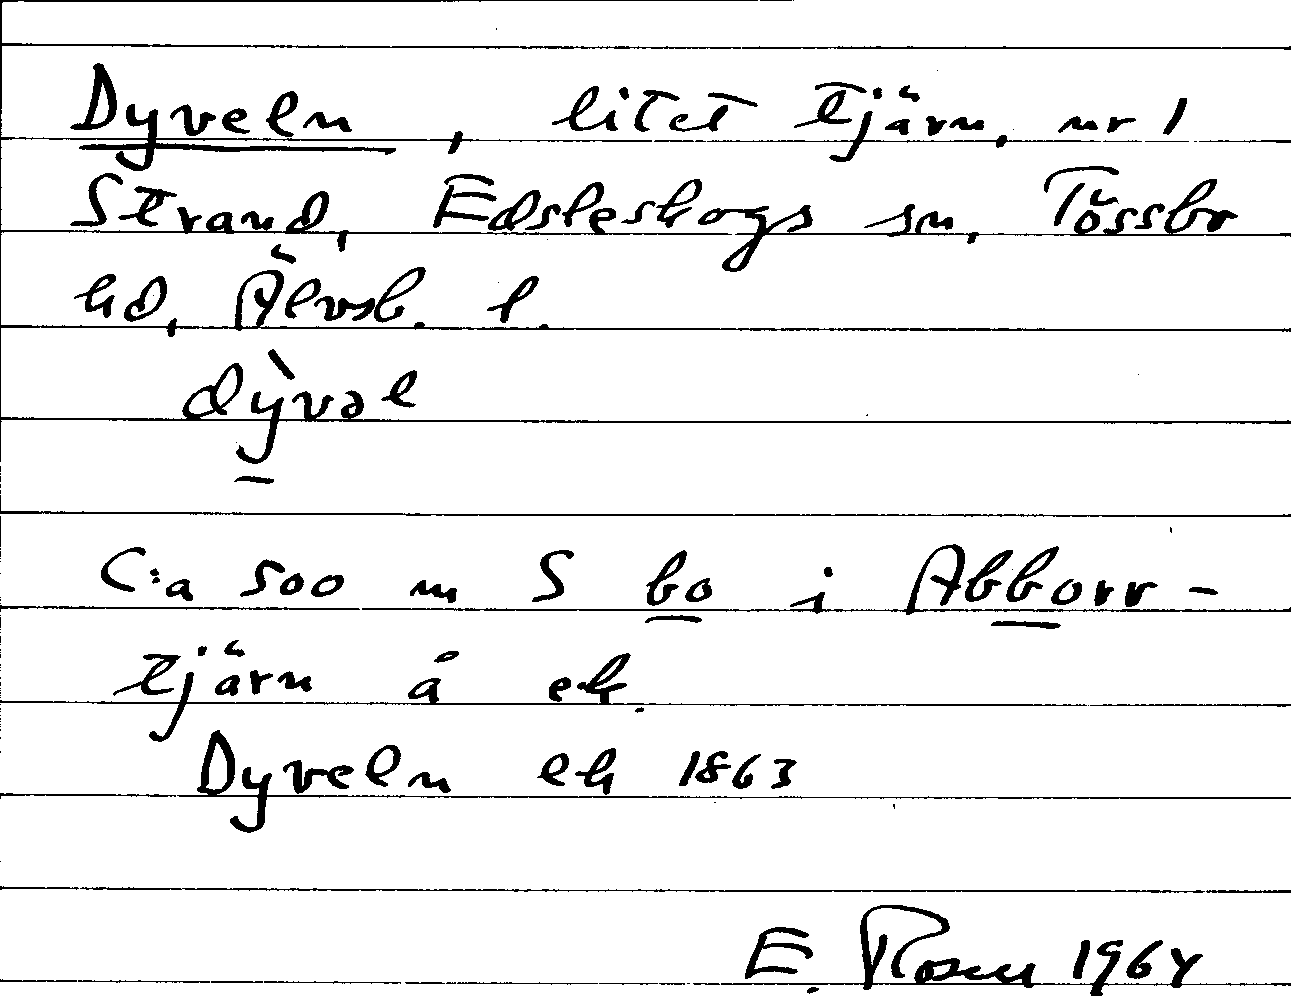 Dyveln, litet tjärn, nr 1
Strand, Edsleskogs sn, Tössbo
hd, Älvsb. l.
dỳvəl
C:a 500 m S bo i Abborr-
tjärn å ek.
Dyveln ek 1863
E. Rosen 1964